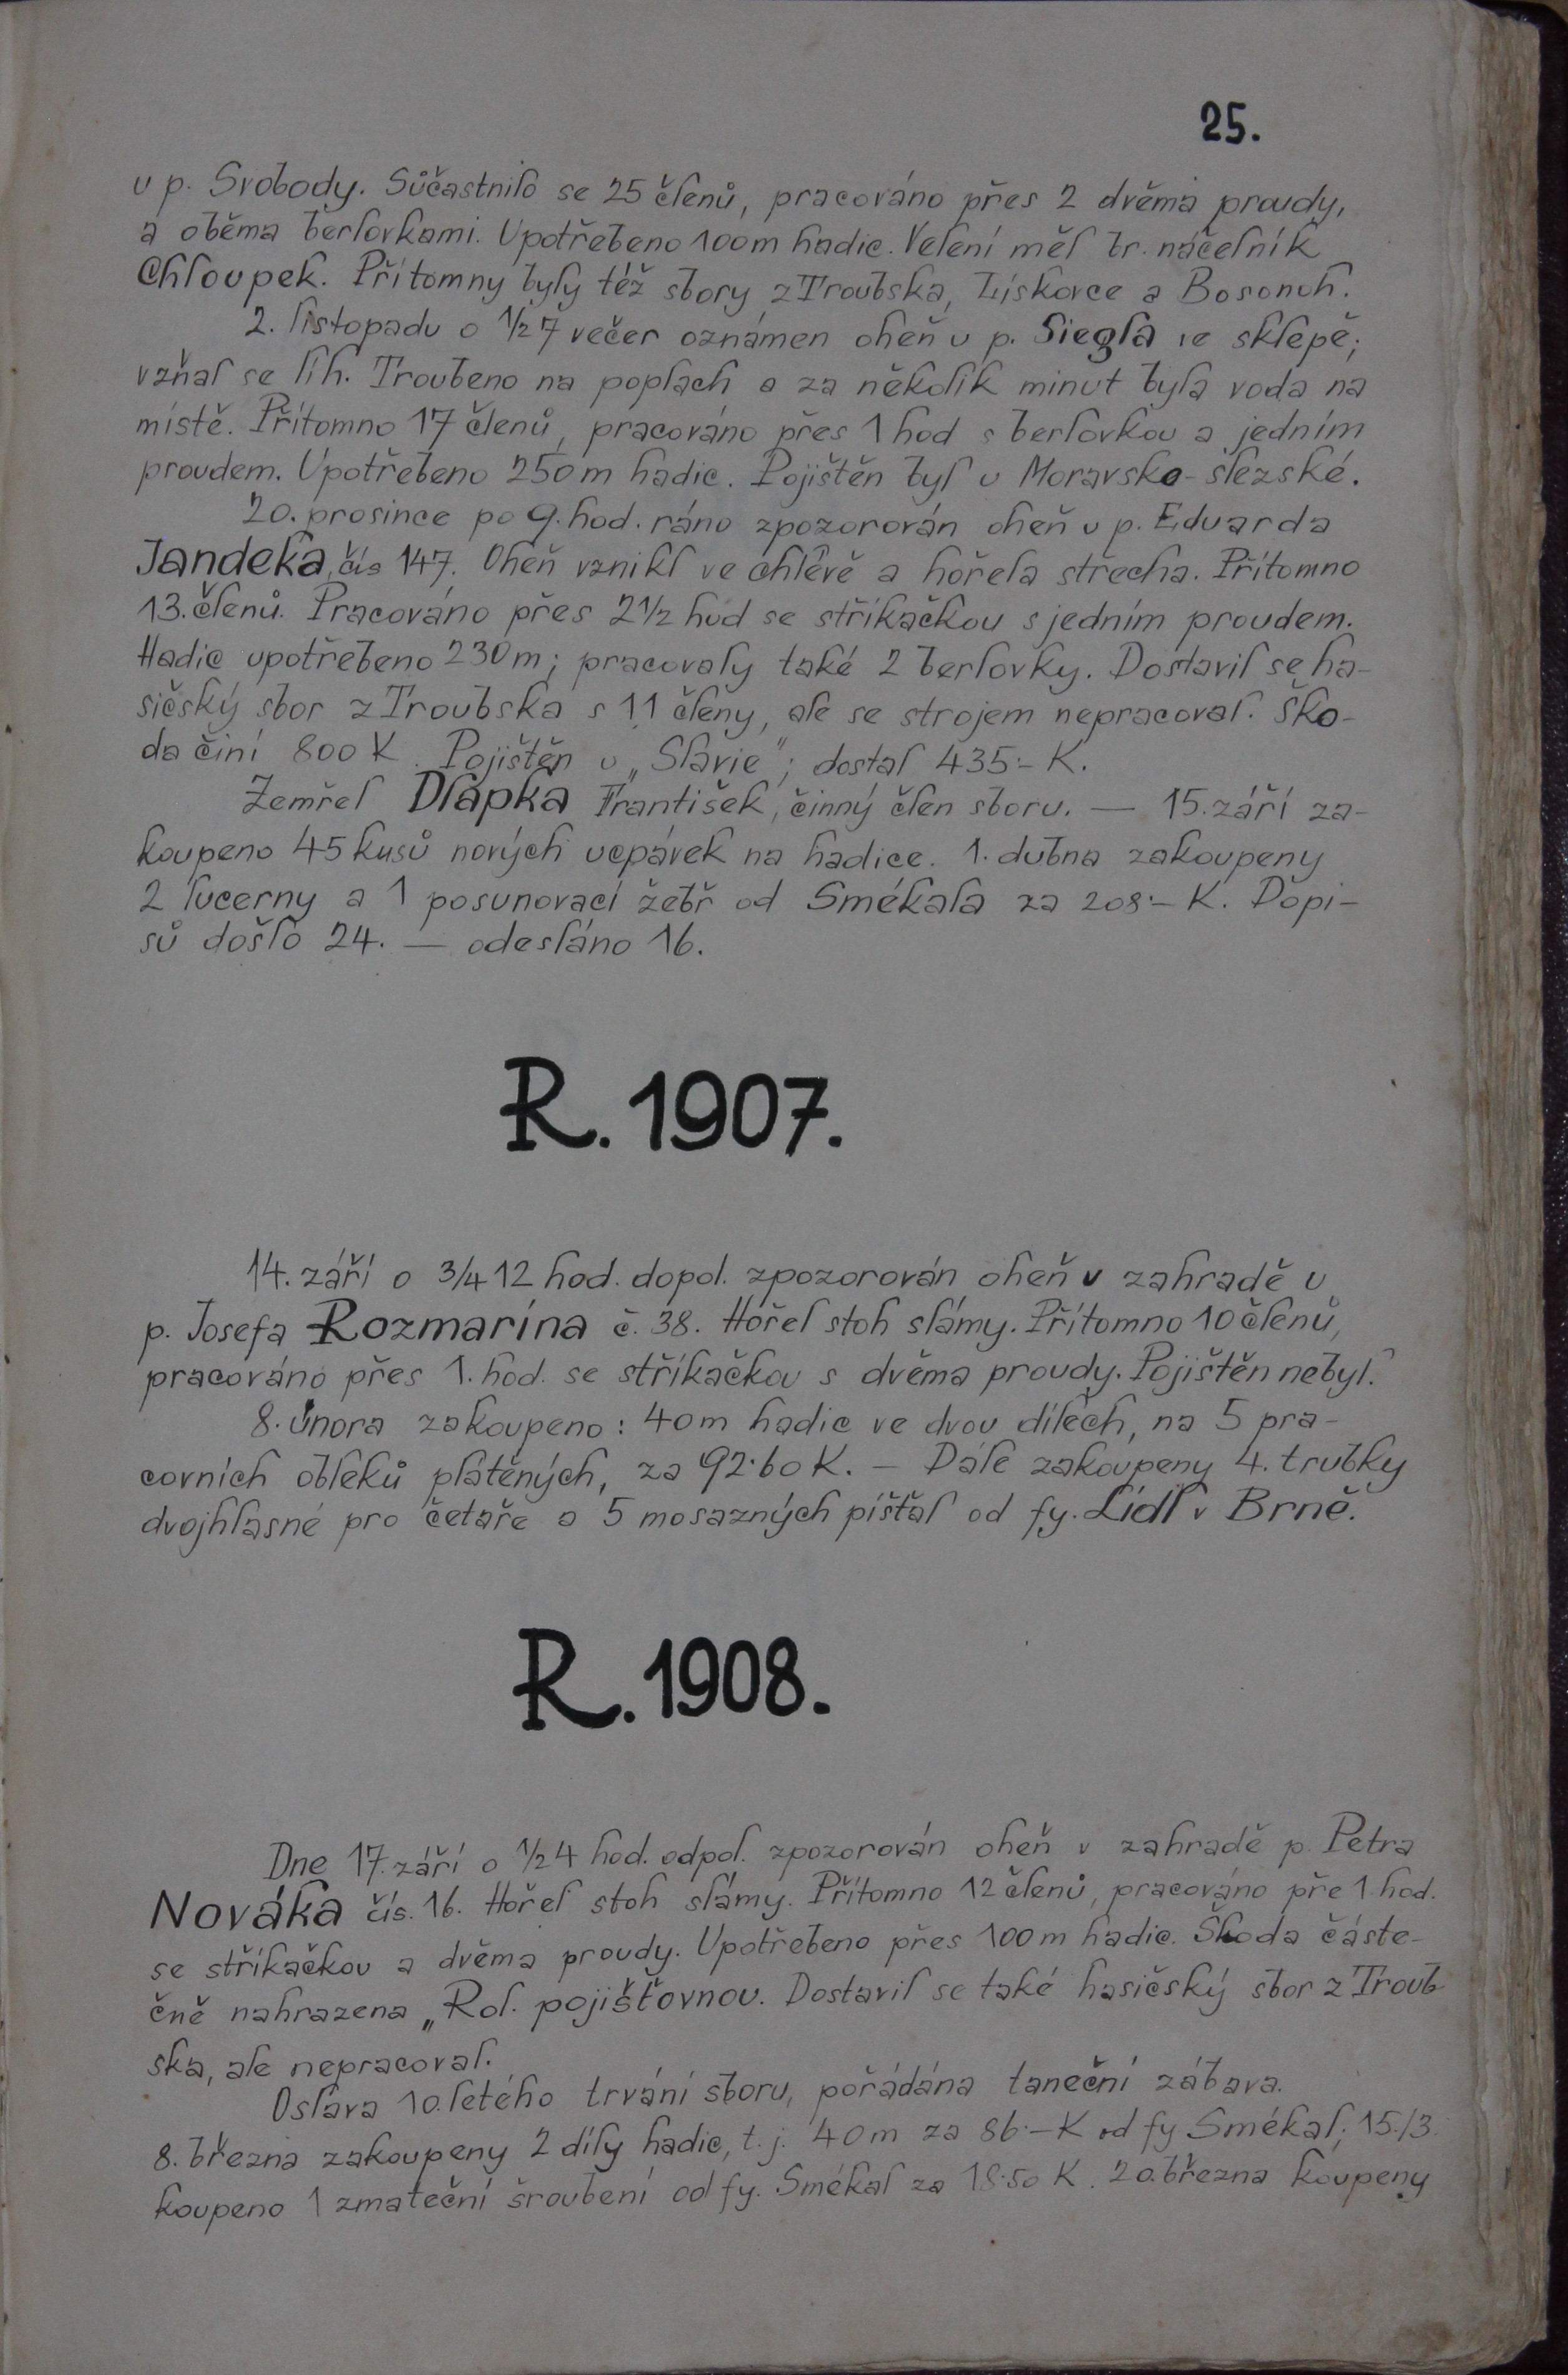 25.
u p. Svobody. Súčastnilo se 25 členů, pracováno přes 2 dvěma proudy,
a oběma berlovkami. Upotřebeno 100 m hadic. Velení měl br. náčelník
Chloupek. Přítomny byly též sbory z Troubska, Lískovce a Bosonoh.
2. listopadu o 1/2 7 večer oznámen oheň u p. Siegla ve sklepě;
vzňal se líh. Troubeno na poplach a za několik minut byla voda na
místě. Přítomno 17 členů, pracováno přes 1 hod s berlovkou a jedním
proudem. Upotřebeno 250 m hadic. Pojištěn byl u Moravsko-slezské.
20. prosince po 9. hod. ráno zpozorován oheň u p. Eduarda
Jandeka, čís 147. Oheň vznikl ve chlévě a hořela střecha. Přítomno
13. členů. Pracováno přes 2 1/2 hod se stříkačkou s jedním proudem.
Hadic upotřebeno 230 m; pracovaly také 2 berlovky. Dostavil se ha-
sičský sbor z Troubska s 11 členy, ale se strojem nepracoval. Ško-
da činí 800 K. Pojištěn u „Slavie"; dostal 435·- K.
Zemřel Dlapka František, činný člen sboru. — 15. září za-
koupeno 45 kusů nových ucpávek na hadice. 1. dubna zakoupeny
2 lucerny a 1 posunovací žebř od Smékala za 208·- K. Dopi-
sů došlo 24. — odesláno 16.
R. 1907.
14. září o 3/4 12 hod. dopol. zpozorován oheň v zahradě u
p. Josefa Rozmarína č. 38. Hořel stoh slámy. Přítomno 10 členů,
pracováno přes 1. hod. se stříkačkou s dvěma proudy. Pojištěn nebyl.
8. února zakoupeno: 40 m hadic ve dvou dílech, na 5 pra-
covních obleků plátěných, za 92·60 K. — Dále zakoupeny 4. trubky
dvojhlasné pro četaře a 5 mosazných píšťal od fy. Lídl v Brně.
R. 1908.
Dne 17. září o 1/2 4 hod. odpol. zpozorován oheň v zahradě p. Petra
Nováka čís. 16. Hořel stoh slámy. Přítomno 12 členů, pracováno pře 1. hod.
se stříkačkou a dvěma proudy. Upotřebeno přes 100 m hadic. Škoda částe-
čně nahrazena „Rol. pojišťovnou. Dostavil se také hasičský sbor z Troub
ska, ale nepracoval.
Oslava 10. letého trvání sboru, pořádána taneční zábava.
8. března zakoupeny 2 díly hadic, t. j. 40 m za 86·- K od fy Smékal; 15./3.
koupeno 1 zmateční šroubení od fy. Smékal za 18·50 K. 20. března koupeny